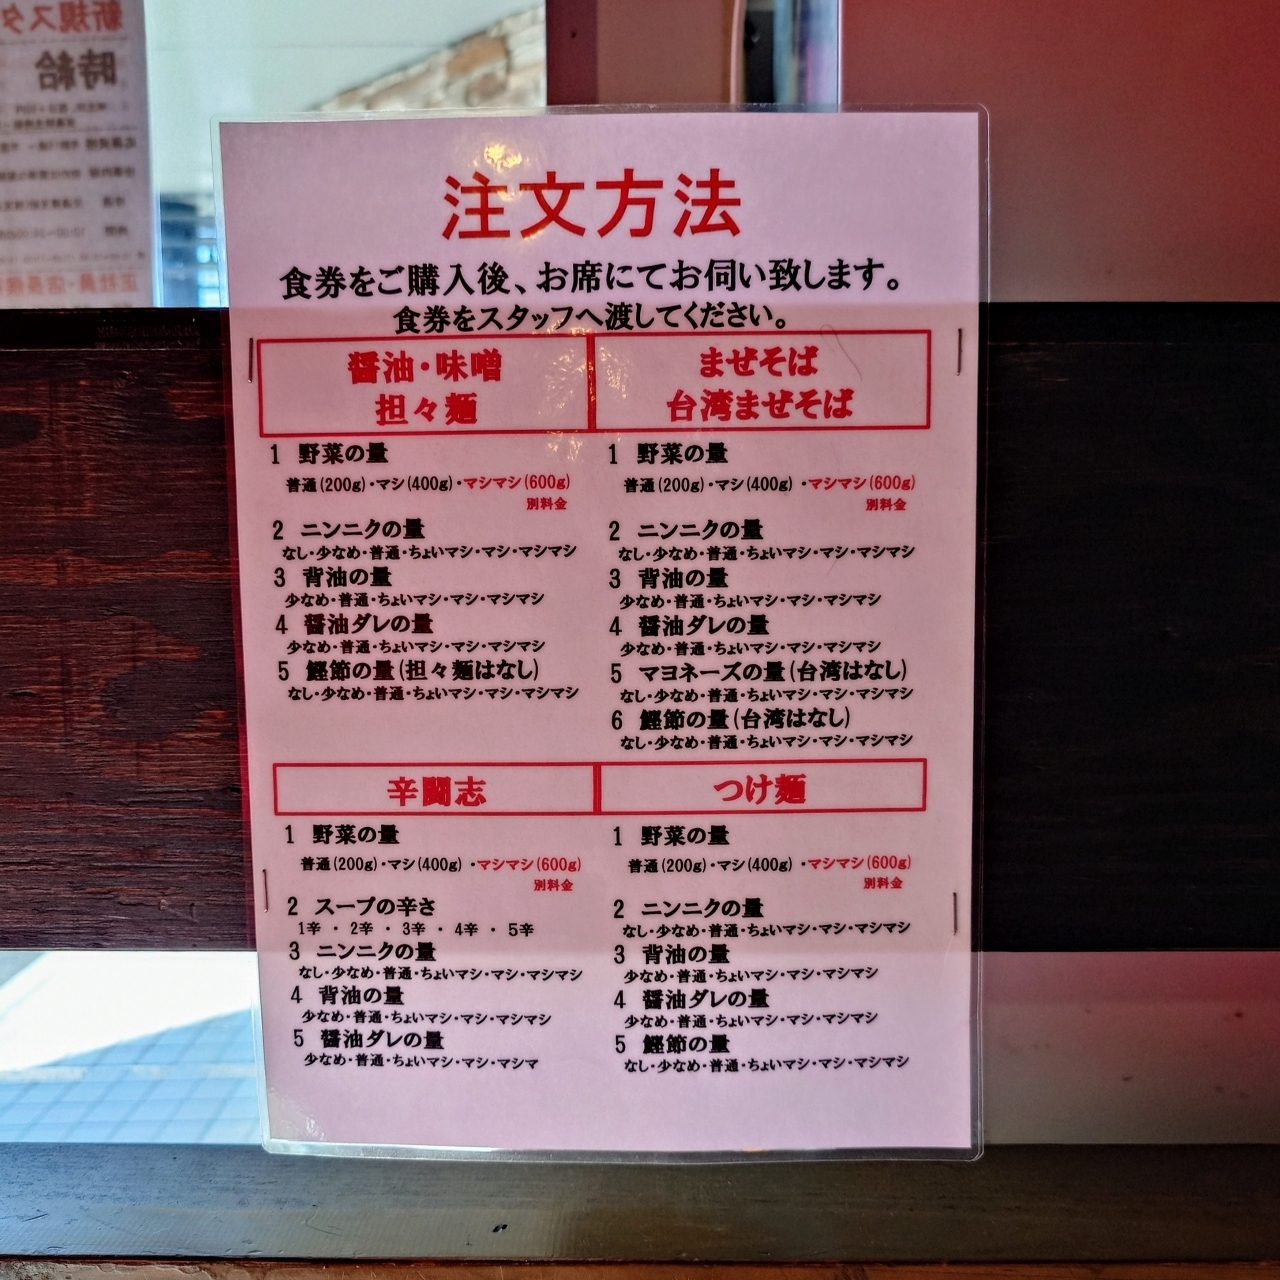 新規スタ
時給
注文方法
食券をご購入後、お席にてお伺い致します。
食券をスタッフへ渡してください。
醤油・味噌
担々麺
1 野菜の量
普通(200g)・マシ(400g)・マシマシ(600g)
別料金
2 ニンニクの量
なし・少なめ・普通・ちょいマシ・マシ・マシマシ
3 背油の量
少なめ・普通・ちょいマシ・マシ・マシマシ
4 醤油ダレの量
少なめ・普通・ちょいマシ・マシ・マシマシ
5 鰹節の量(担々麺はなし)
なし・少なめ・普通・ちょいマシ・マシ・マシマシ
まぜそば
台湾まぜそば
1 野菜の量
普通(200g)・マシ(400g)・マシマシ(600g)
別料金
2 ニンニクの量
なし・少なめ・普通・ちょいマシ・マシ・マシマシ
3 背油の量
少なめ・普通・ちょいマシ・マシ・マシマシ
4 醤油ダレの量
少なめ・普通・ちょいマシ・マシ・マシマシ
5 マヨネーズの量(台湾はなし)
なし・少なめ・普通・ちょいマシ・マシ・マシマシ
6 鰹節の量(台湾はなし)
なし・少なめ・普通・ちょいマシ・マシ・マシマシ
辛闘志
1 野菜の量
普通(200g)・マシ(400g)・マシマシ(600g)
別料金
2 スープの辛さ
1辛 ・ 2辛 ・ 3辛 ・ 4辛 ・ 5辛
3 ニンニクの量
なし・少なめ・普通・ちょいマシ・マシ・マシマシ
4 背油の量
少なめ・普通・ちょいマシ・マシ・マシマシ
5 醤油ダレの量
少なめ・普通・ちょいマシ・マシ・マシマ
つけ麺
1 野菜の量
普通(200g)・マシ(400g)・マシマシ(600g)
別料金
2 ニンニクの量
なし・少なめ・普通・ちょいマシ・マシ・マシマシ
3 背油の量
少なめ・普通・ちょいマシ・マシ・マシマシ
4 醤油ダレの量
少なめ・普通・ちょいマシ・マシ・マシマシ
5 鰹節の量
なし・少なめ・普通・ちょいマシ・マシ・マシマシ